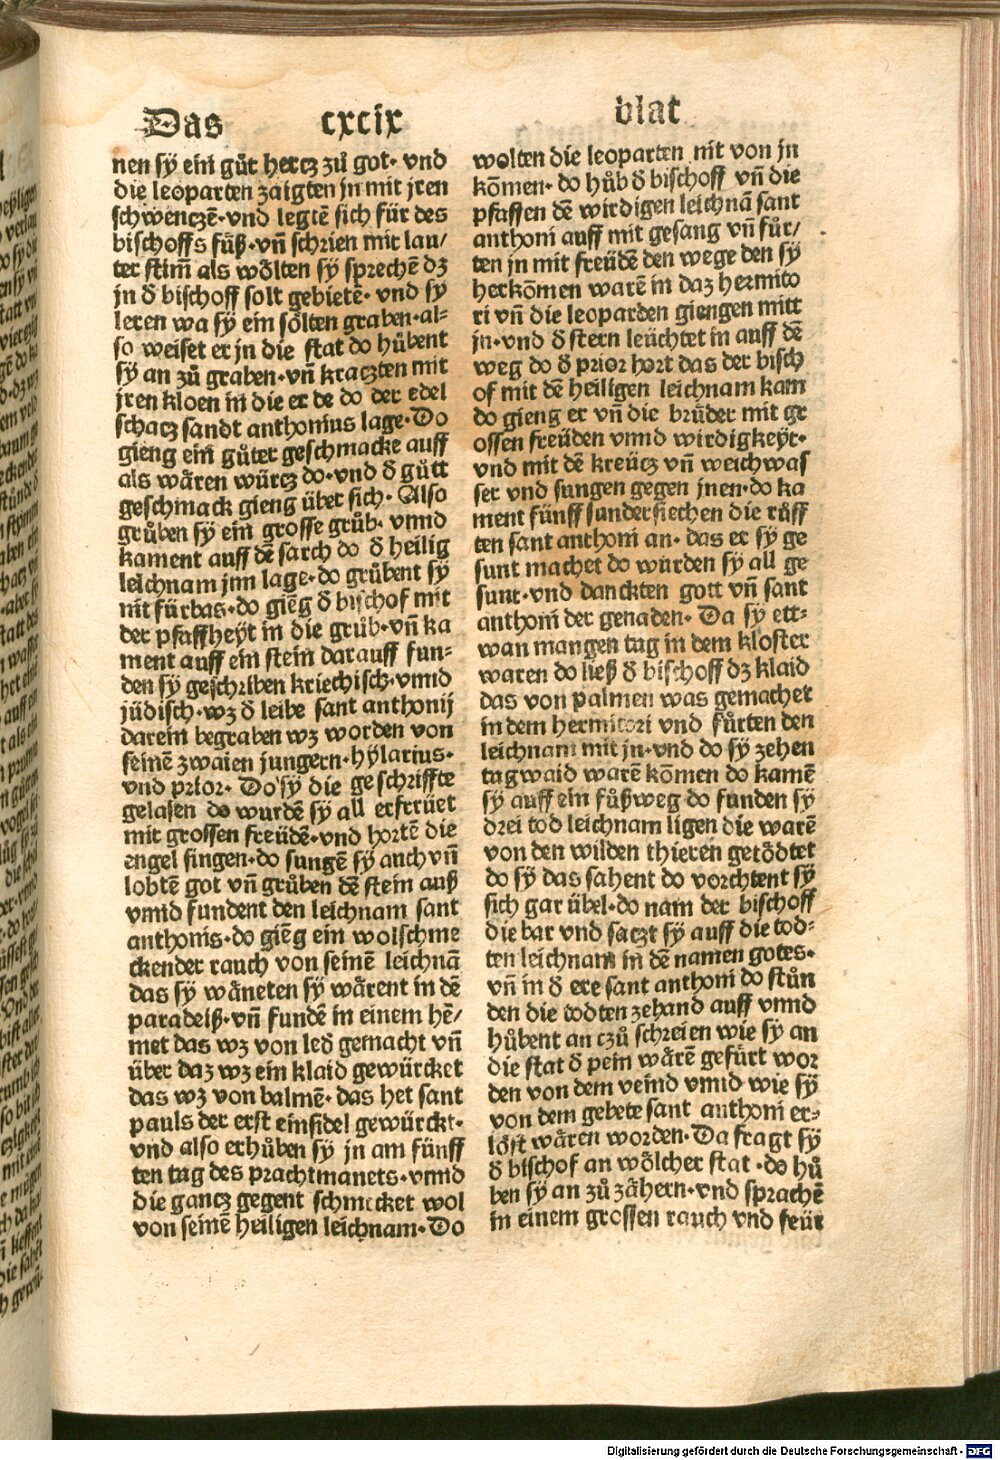 Das cxcix blat
nen sÿ ein gůt hercz zů got· vnd
die leoparten zaigten jn mit jren
schwenczē·vnd legtē sich für des
bischoffs fůß·vñ schrien mit lau/
ter stim̃ als wőlten sÿ sprechē dz
jn d̕ bischoff solt gebietē· vnd sÿ
leren wa sÿ ein sőlten graben·al⸗
so weiset er jn die stat do hůbent
sÿ an zů graben·vñ kraczten mit
jren kloen in die er de do der edel
schacz sandt anthonius lage·Do
gieng ein gůter geschmacke auff
als wären würcz do·vnd d̕ gůtt
geschmack gieng über sich· Also
grůben sÿ ein grosse grůb· vnnd
kament auff dē sarch do d̕ heilig
leichnam jnn lage·do grůbent sÿ
nit fürbas·do giēg d̕ bischof mit
der pfaffheÿt in die grůb·vñ ka
ment auff ein stein darauff fun⸗
den sÿ geschriben kriechisch·vnnd
jüdisch·wz d̕ leibe sant anthonij
darein begraben wz worden von
seinē zwaien jungern·hÿlarius·
vnd prior· Do sÿ die geschriffte
gelasen do wurdē sÿ all erfrüet
mit grossen freüdē·vnd hortē die
engel singen·do sungē sÿ auch vñ
lobtē got vñ grůben dē stein auß
vnnd fundent den leichnam sant
anthonis·do giēg ein wolschme
ckender rauch von seinē leichnā
das sÿ wäneten sÿ wärent in dē
paradeiß·vñ fundē in einem hē/
met das wz von led̕ gemacht vñ
über daz wz ein klaid gewürcket
das wz von balmē·das het sant
pauls der erst einsidel gewürckt·
vnd also erhůben sÿ jn am fünff
ten tag des prachmanets·vnnd
die gancz gegent schmecket wol
von seinē heiligen leichnam·Do
wolten die leoparten nit von jn
kőmen·do hůb d̕ bischoff vñ die
pfaffen dē wirdigen leichnā sant
anthoni auff mit gesang vñ fůr/
ten jn mit freüdē den wege den sÿ
herkőmen warē in daz hermito
ri vñ die leoparden giengen mitt
jn·vnd d̕ stern leüchtet in auff dē
weg do d̕ prior hort das der bisch
of mit dē heiligen leichnam kam
do gieng er vñ die brüder mit gr
ossen freüden vnnd wirdigkeÿt·
vnd mit dē kreücz vñ weichwas
ser vnd sungen gegen jnen·do ka
ment fünff sundersiechen die růff
ten sant anthoni an· das er sÿ ge
sunt machet do wurden sÿ all ge
sunt·vnd danckten gott vñ sant
anthoni der genaden· Da sÿ ett⸗
wan mangen tag in dem kloster
waren do ließ d̕ bischoff dz klaid
das von palmen was gemachet
in dem hermitori vnd fůrten den
leichnam mit jn·vnd do sÿ zehen
tagwaid warē kőmen do kamē
sÿ auff ein fůßweg do funden sÿ
drei tod leichnam ligen die warē
von den wilden thieren getődtet
do sÿ das sahent do vorchtent sÿ
sich gar übel·do nam der bischoff
die bar vnd saczt sÿ auff die tod⸗
ten leichnam in dē namen gotes·
vñ in d̕ ere sant anthoni do stůn
den die todten zehand auff vnnd
hůbent an czů schreien wie sÿ an
die stat d̕ pein wärē gefürt wor
den von dem veind vnnd wie sÿ
von dem gebete sant anthoni er⸗
lőst wären worden·Da fragt sÿ
d̕ bischof an wőlcher stat ·do hů
ben sÿ an zů zähern·vnd sprachē
in einem grossen rauch vnd feür
Digitalisierung gefördert durch die Deutsche Forschungsgemeinschaft - DFG